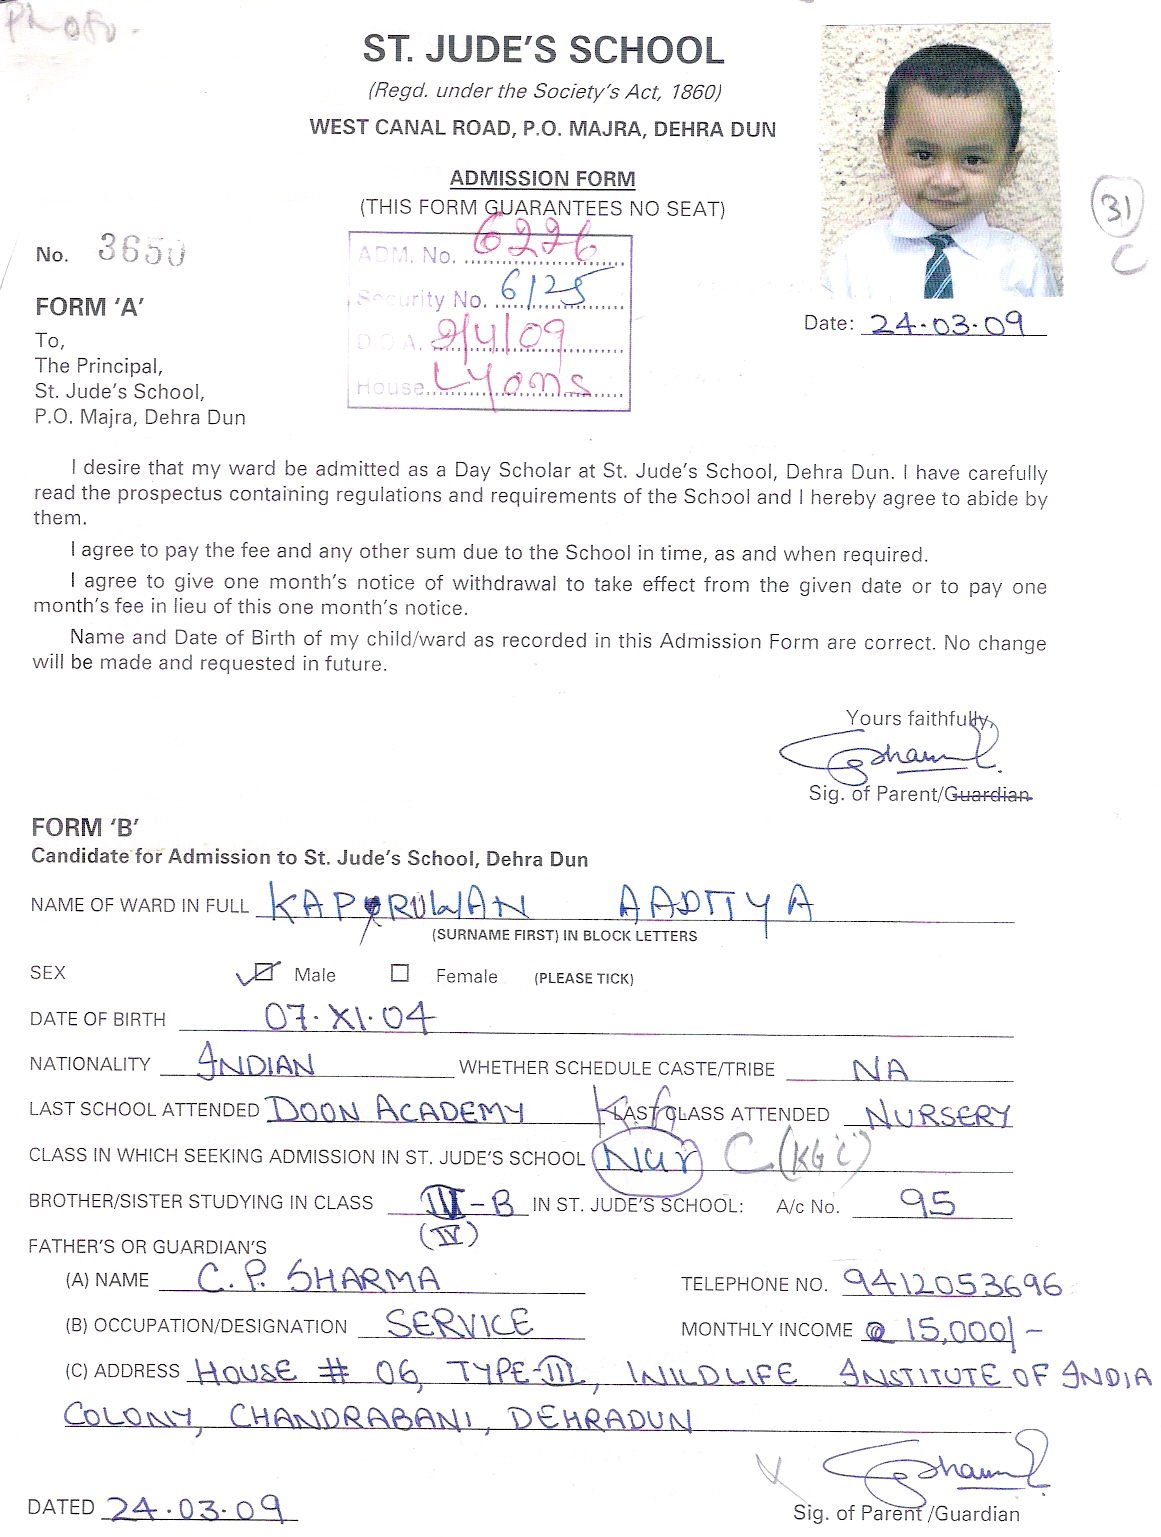 Photo.
ST. JUDE'S SCHOOL
(Regd. under the Society's Act, 1860)
WEST CANAL ROAD, P.O. MAJRA, DEHRA DUN
ADMISSION FORM
(THIS FORM GUARANTEES NO SEAT)
31
C
No. 3650
ADM. No. 6226
Security No. 6125
D O A. 2/4/09
House Lyons
Date: 24.03.09
FORM 'A'
To,
The Principal,
St. Jude's School,
P.O. Majra, Dehra Dun
I desire that my ward be admitted as a Day Scholar at St. Jude's School, Dehra Dun. I have carefully
read the prospectus containing regulations and requirements of the School and I hereby agree to abide by
them.
I agree to pay the fee and any other sum due to the School in time, as and when required.
I agree to give one month's notice of withdrawal to take effect from the given date or to pay one
month's fee in lieu of this one month's notice.
Name and Date of Birth of my child/ward as recorded in this Admission Form are correct. No change
will be made and requested in future.
Yours faithfully,
Sig. of Parent/Guardian
FORM 'B'
Candidate for Admission to St. Jude's School, Dehra Dun
NAME OF WARD IN FULL KAPRUWAN AADITYA
(SURNAME FIRST) IN BLOCK LETTERS
SEX Male Female (PLEASE TICK)
DATE OF BIRTH 07.XI.04
NATIONALITY INDIAN WHETHER SCHEDULE CASTE/TRIBE NA
LAST SCHOOL ATTENDED DOON ACADEMY LAST CLASS ATTENDED NURSERY
CLASS IN WHICH SEEKING ADMISSION IN ST. JUDE'S SCHOOL Nur C (KG 'C')
BROTHER/SISTER STUDYING IN CLASS III-B IN ST. JUDE'S SCHOOL: A/c No. 95
(IV)
FATHER'S OR GUARDIAN'S
(A) NAME C.P. SHARMA TELEPHONE NO. 9412053696
(B) OCCUPATION/DESIGNATION SERVICE MONTHLY INCOME @ 15,000/-
(C) ADDRESS HOUSE # 06, TYPE-III, WILDLIFE INSTITUTE OF INDIA
COLONY, CHANDRABANI, DEHRADUN
DATED 24.03.09
Sig. of Parent /Guardian